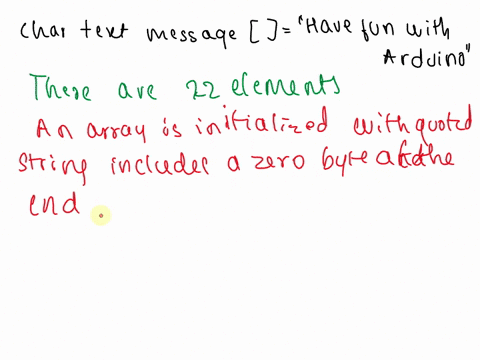 char text message [] = "Have fun with
Arduino"
There are 22 elements
An array is initialized with quoted
string includes a zero byte at the
end.